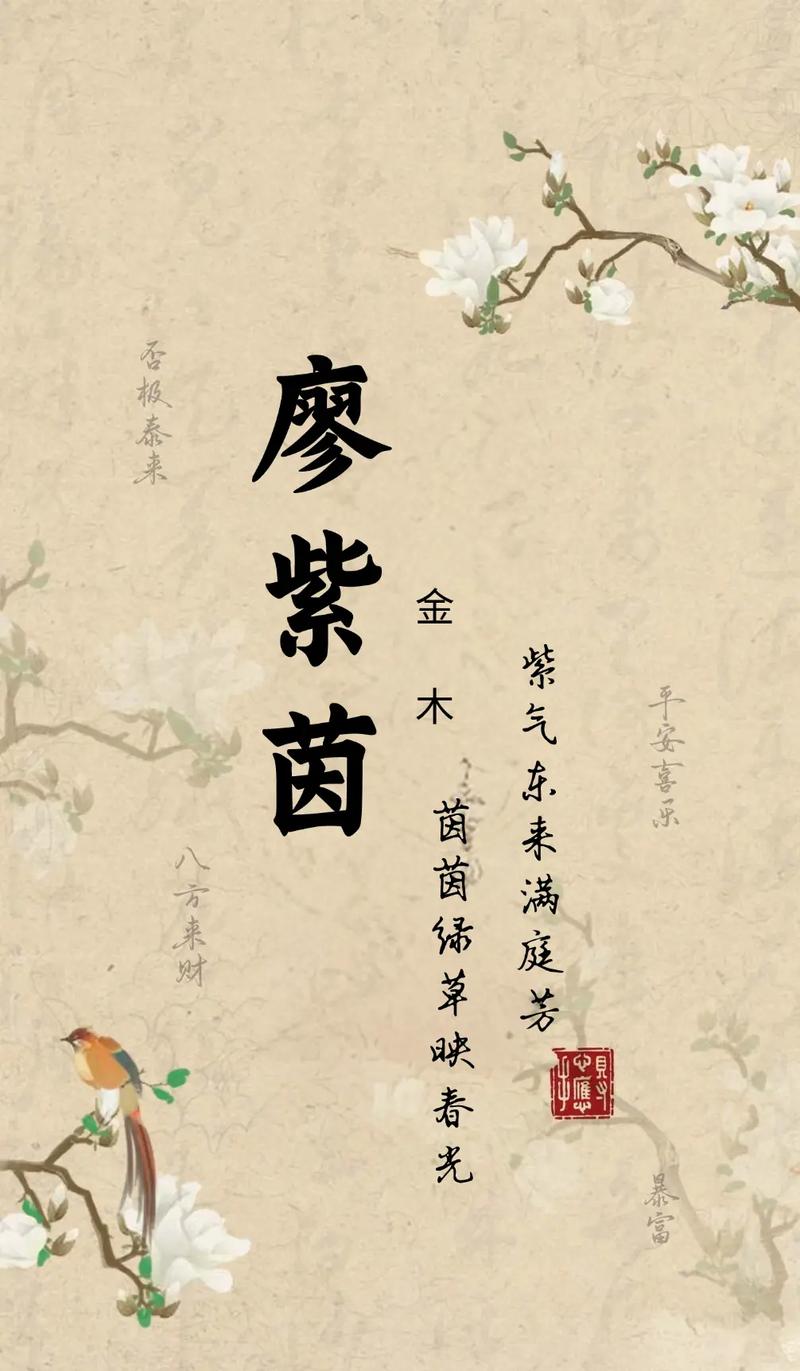 廖紫茵
金木
紫气东来满庭芳
茵茵绿草映春光
否极泰来
平安喜乐
八方来财
暴富